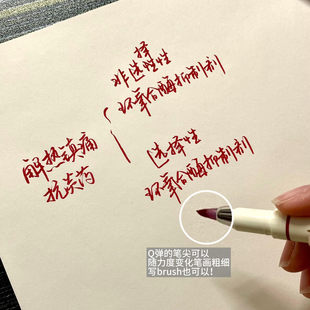 择
非选性性
环氧合酶抑制剂
解热镇痛
抗炎药
选择性
环氧合酶抑制剂
Q弹的笔尖可以
随力度变化笔画粗细
写brush也可以!